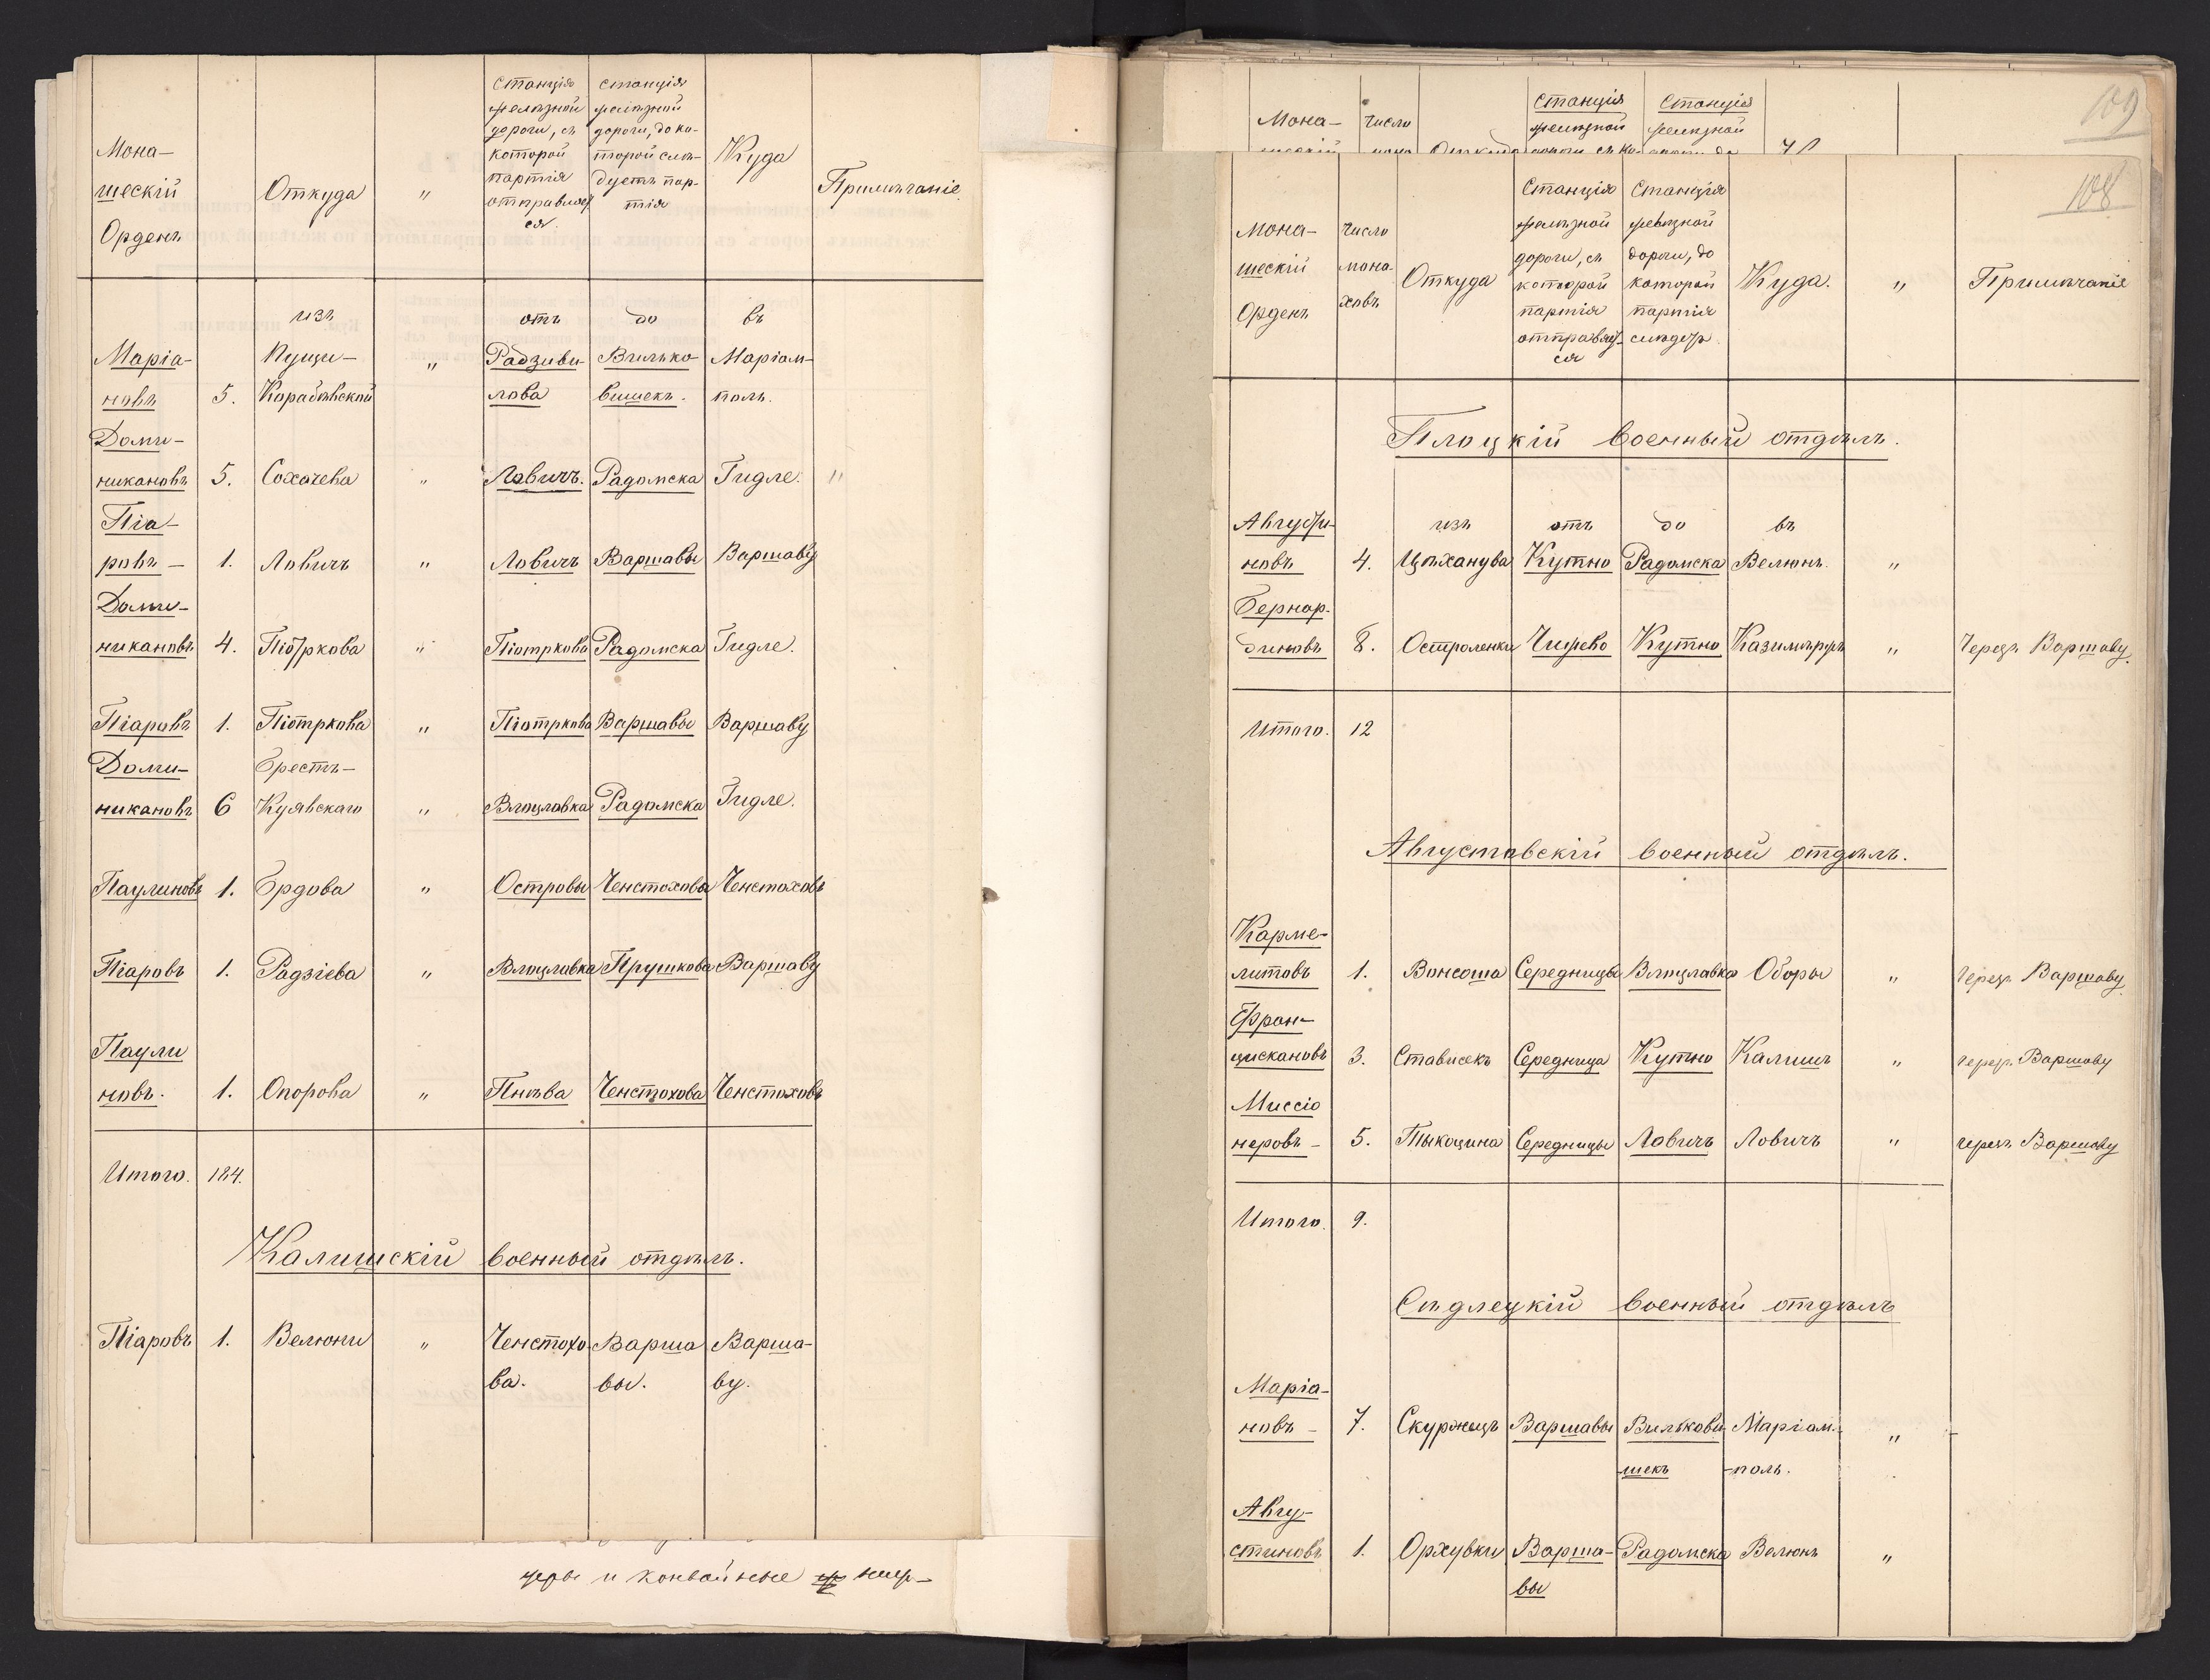 Мона-
шескій
Орденъ
Откуда
"
Станція
желѣзной
дороги, съ
которой
партія
отправляет
ся
Станція
желѣзной
дороги, до ко-
торой слѣ-
дуетъ пар-
тія
Куда
Примѣчаніе.
изъ
отъ
до
въ
Маріа-
Пущи-
"
Радзиви-
Вилько-
Маріам-
новъ
5.
Корабѣвской
лова
вишекъ.
поль.
Доми-
никановъ
5.
Сохачева
"
Ловичъ.
Радомска
Гидле.
"
Піа-
ровъ -
1.
Ловичъ
"
Ловичъ
Варшавы
Варшаву
Доми-
никановъ
4.
Піотркова
"
Піотркова
Радомска
Гидле.
Піаровъ
1.
Піотркова
"
Піотркова
Варшавы
Варшаву
Доми-
Брестъ-
никановъ
6
Куявскаго
"
Влоцлавка
Радомска
Гидле.
Паулиновъ
1.
Брдова
"
Островы
Ченстохова
Ченстоховъ
Піаровъ
1.
Радзіева
"
Влоцлавка
Прушкова
Варшаву
Паули
новъ.
1.
Опорова
"
Пнѣва
Ченстохова
Ченстоховъ
Итого.
184.
Калишскій военный отдѣлъ.
Піаровъ
1.
Велюни
"
Ченстохо-
Варша
Варша-
ва.
вы.
ву.
и конвойные
109
Мона-
Число
Станція
желѣзной
Станція
желѣзной
108
Мона-
шескій
Орденъ
Число
мона-
ховъ
Откуда
Станція
желѣзной
дороги, съ
которой
партія
отправляет-
ся
Станція
желѣзной
дороги, до
которой
партія
слѣдуетъ.
Куда.
"
Примѣчаніе
Плоцкій военный отдѣлъ.
Августи-
изъ
отъ
до
въ
новъ
4.
Цѣханува
Кутно
Радомска
Велюнь.
"
Бернар-
диновъ
8.
Остроленки
Чижево
Кутно
Казимѣржъ
"
Черезъ Варшаву.
Итого.
12
Августовскій военный отдѣлъ.
Карме-
литовъ
1.
Вонсоша
Середницы
Влоцлавка
Оборы
"
Черезъ Варшаву.
Фран-
цискановъ
3.
Стависекъ
Середница
Кутно
Калишъ
"
Черезъ Варшаву
Миссіо
неровъ -
5.
Тыкоцина
Середницы
Ловичъ
Ловичъ
"
Черезъ Варшаву
Итого.
9.
Сѣдлецкій военный отдѣлъ
Маріа-
новъ -
7.
Скуржецъ
Варшавы
Вилькови-
Маріам-
"
шекъ
поль.
Авгу-
стиновъ
1.
Орхувки
Варша-
Радомска
Велюнь
"
вы